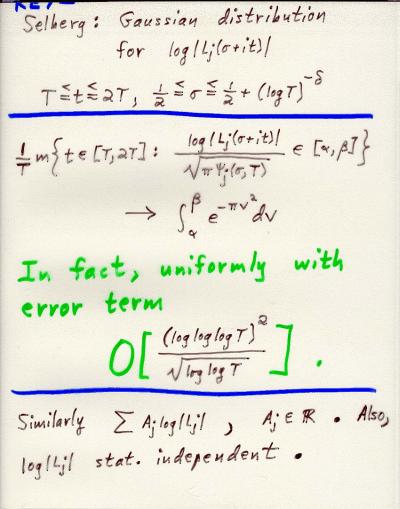 KEY
Selberg: Gaussian distribution
for log|Lj(σ+it)|
T ≦ t ≦ 2T, 1/2 ≦ σ ≦ 1/2 + (log T)^-δ
1/T m{t ∈ [T,2T]: log|Lj(σ+it)| / √(π Ψj(σ,T)) ∈ [α,β]}
→ ∫_α^β e^(-πv²) dv
In fact, uniformly with
error term
O[ (log log log T)² / √(log log T) ] .
Similarly ∑ Aj log|Lj| , Aj ∈ ℝ . Also,
log|Lj| stat. independent .